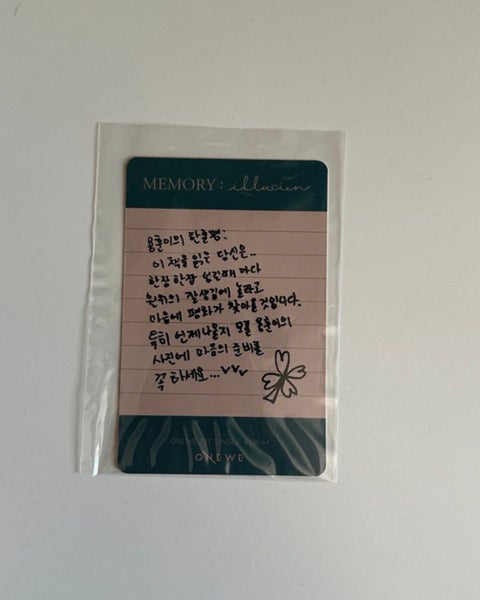 MEMORY : illusion
용훈이의 한줄평:
이 책을 읽는 당신은..
한장 한장 넘길때 마다
원위의 잘생김에 놀라고
마음에 평화가 찾아올것입니다.
특히 언제나올지 모를 용훈이의
사진에 마음의 준비를
꼭 하세요...
ONEWE 1ST SINGLE ALBUM
ONEWE